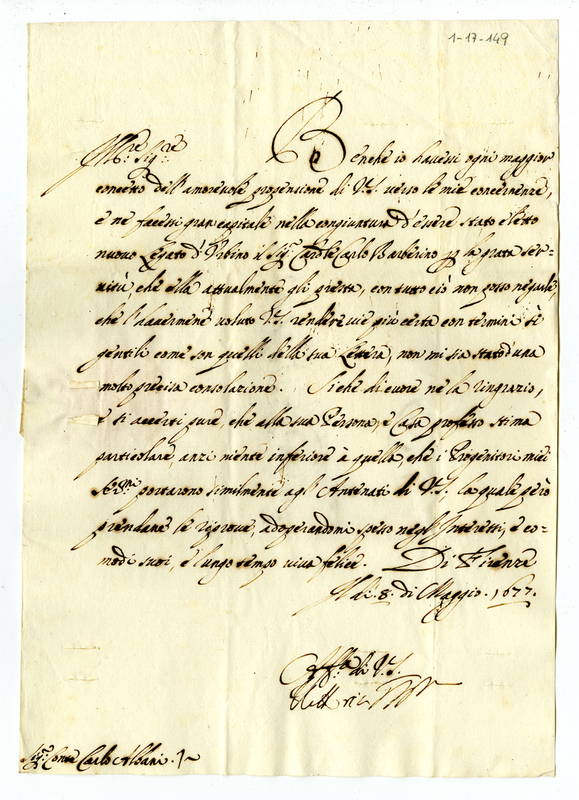 1-17-149
Ill.re Sig.re Benche io havessi ogni maggior
concetto dell'amorevole propensione di V.S. verso le mie concernenze,
e ne facessi gran capitale nella congiuntura d'essere stato eletto
nuovo Legato d'Urbino il Sig.r Card.le Carlo Barberino p la grata ser-
vitù, che ella attualmente gli presta, con tutto ciò non posso negarle,
che l'havermene voluto V.S. rendere vie più certa con termini sì
gentili come son quelli della sua Lettera, non mi sia stato d'una
molto precisa consolazione. Siche di cuore ne la ringrazio,
e si accerti pure, che alla sua Persona, e Casa professo stima
particolare, anzi niente inferiore à quella, che i Progenitori miei
Ser.mi portarono similmente agl'Antenati di V.S. la quale però
prendane le riprove, adoperandomi spesso negl'Interessi, e co-
modi suoi, e lungo tempo viva felice. Di Firenze
li 8. di Maggio. 1677.
Aff.ma di V.S.
Vittoria
Sig.r Conte Carlo Albani.